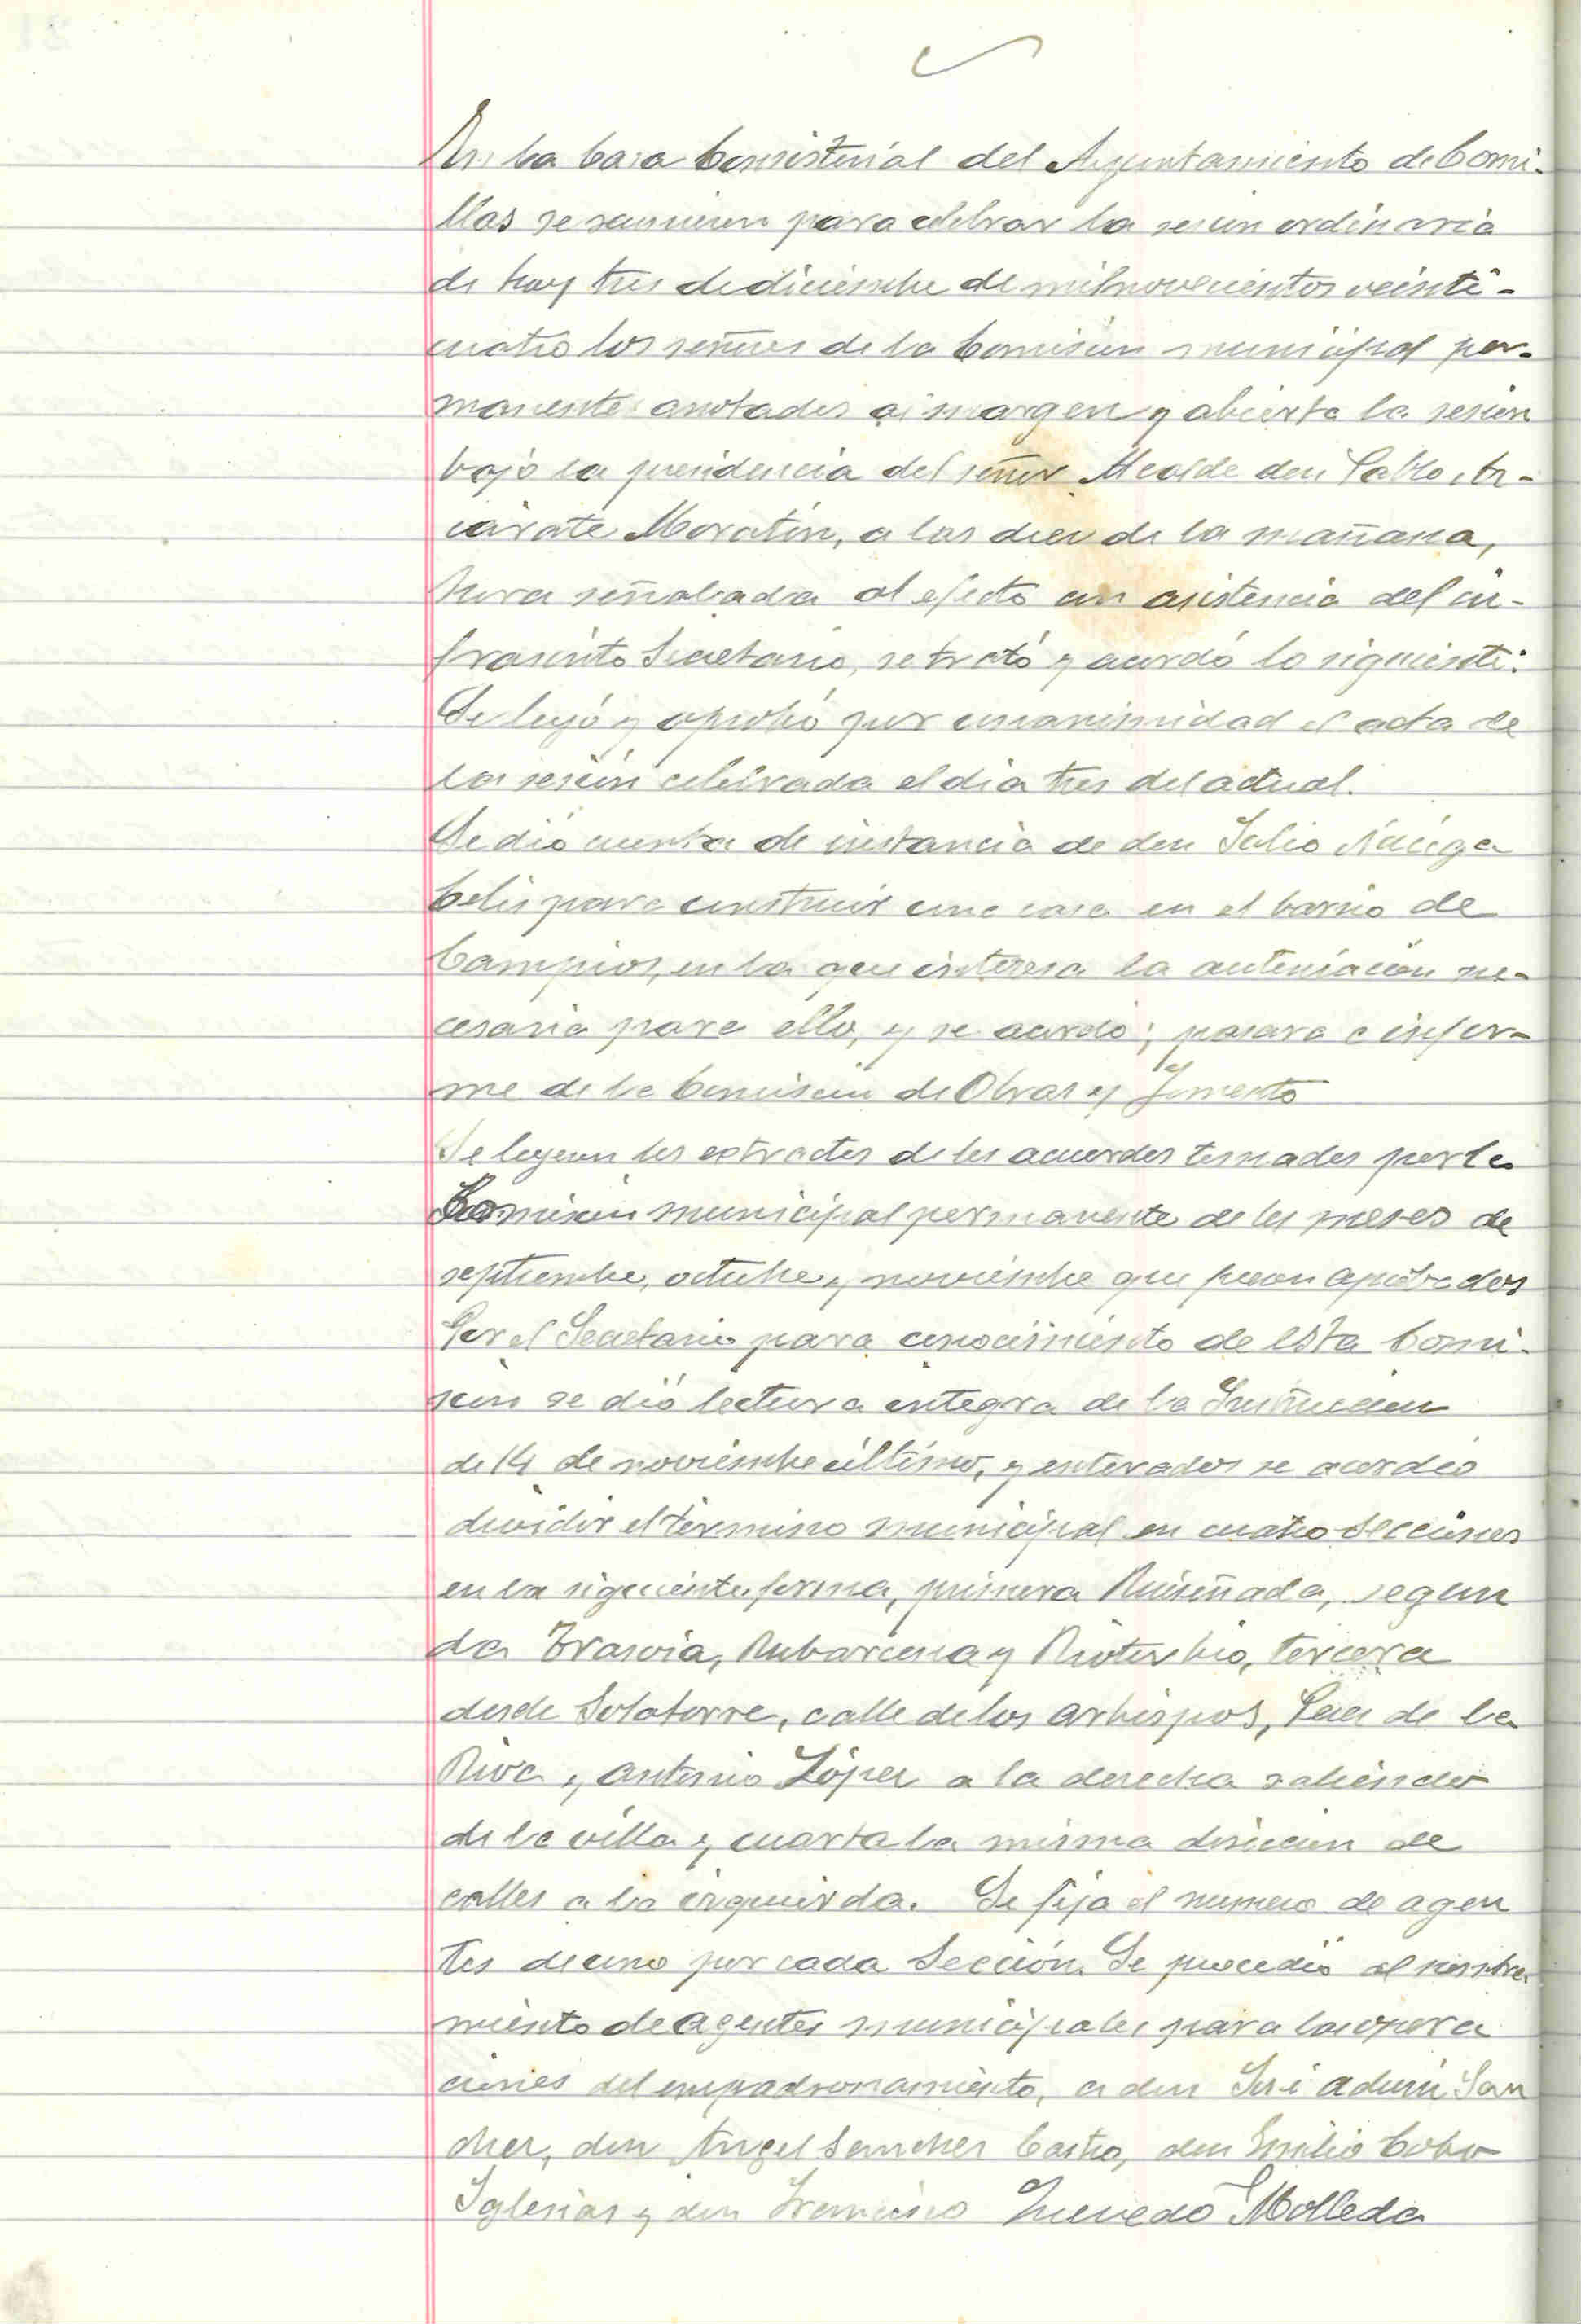 En la Casa Consistorial del Ayuntamiento de Comi-
llas se reunieron para celebrar la sesion ordinaria
de hoy tres de diciembre de mil novecientos veinti-
cuatro los señores de la Comisión municipal per-
manente anotados al margen y abierta la sesion
bajo la presidencia del señor Alcalde don Pablo Az-
cárate Moratín, a las diez de la mañana,
hora señalada al efecto con asistencia del in-
frascrito Secretario, se trató y acordó lo siguiente:
Se leyó y aprobó por unanimidad el acta de
la sesión celebrada el dia tres del actual.
Se dió cuenta de instancia de don Julio
Celis para construir una casa en el barrio de
Campios, en la que interesa la autorización ne-
cesaria para ello, y se acordó; pasara a infor-
me de la Comision de Obras y Fomento
Se leyeron los extractos de los acuerdos tomados por la
Comisión municipal permanente de los meses de
septiembre, octubre y noviembre que fueron aprobados
Por el Secretario para conocimiento de esta Comi-
sión se dió lectura integra de la Instrucción
de 14 de noviembre último, y enterados se acordó
dividir el término municipal en cuatro secciones
en la siguiente forma, primera Ruiseñada, segun
da Trasvia, Rubarcena y Rioturbio, tercera
desde Solatorre, calle de los Arzbispos, de la
Riva y Antonio López a la derecha saliendo
de la villa y cuarta la misma dirección de
calles a la izquierda. Se fija el numero de agen
tes de uno por cada Sección. Se procedió al nombra
miento de agentes municipales para las opera
ciones del empadronamiento, a don José San
chez, don Angel Sanchez Castro, don Emilio Cobo
Iglesias y don Francisco Molleda